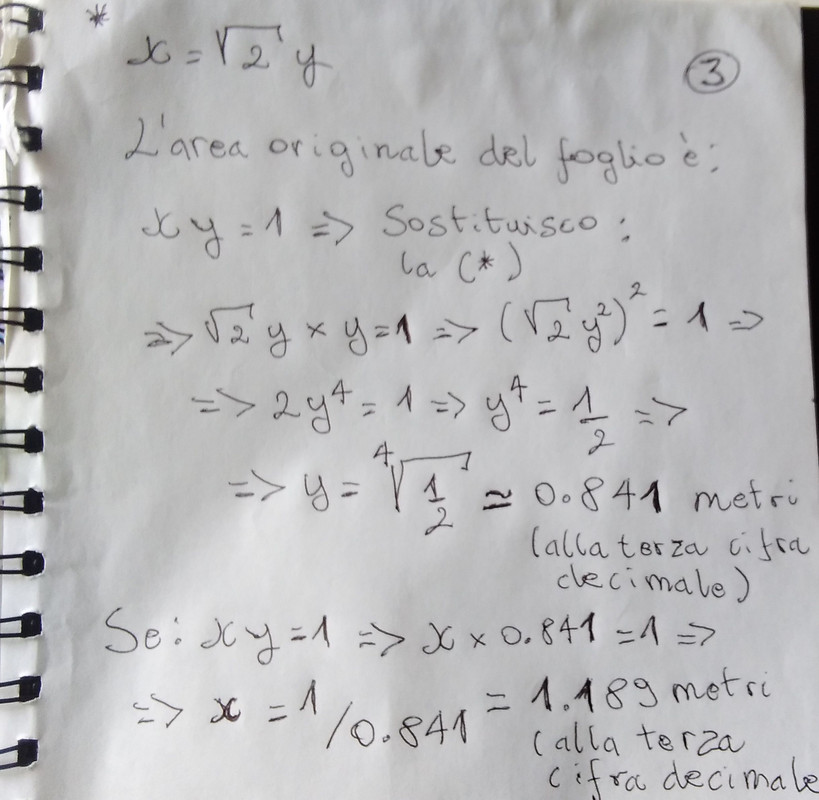 *
x = √2 y
③
L'area originale del foglio è:
x y = 1 => Sostituisco :
la (*)
=> √2 y × y = 1 => (√2 y²)² = 1 =>
=> 2y⁴ = 1 => y⁴ = 1/2 =>
=> y = ⁴√1/2 ≃ 0.841 metri
(alla terza cifra
decimale)
Se: x y = 1 => x × 0.841 = 1 =>
=> x = 1/0.841 = 1.189 metri
(alla terza
cifra decimale